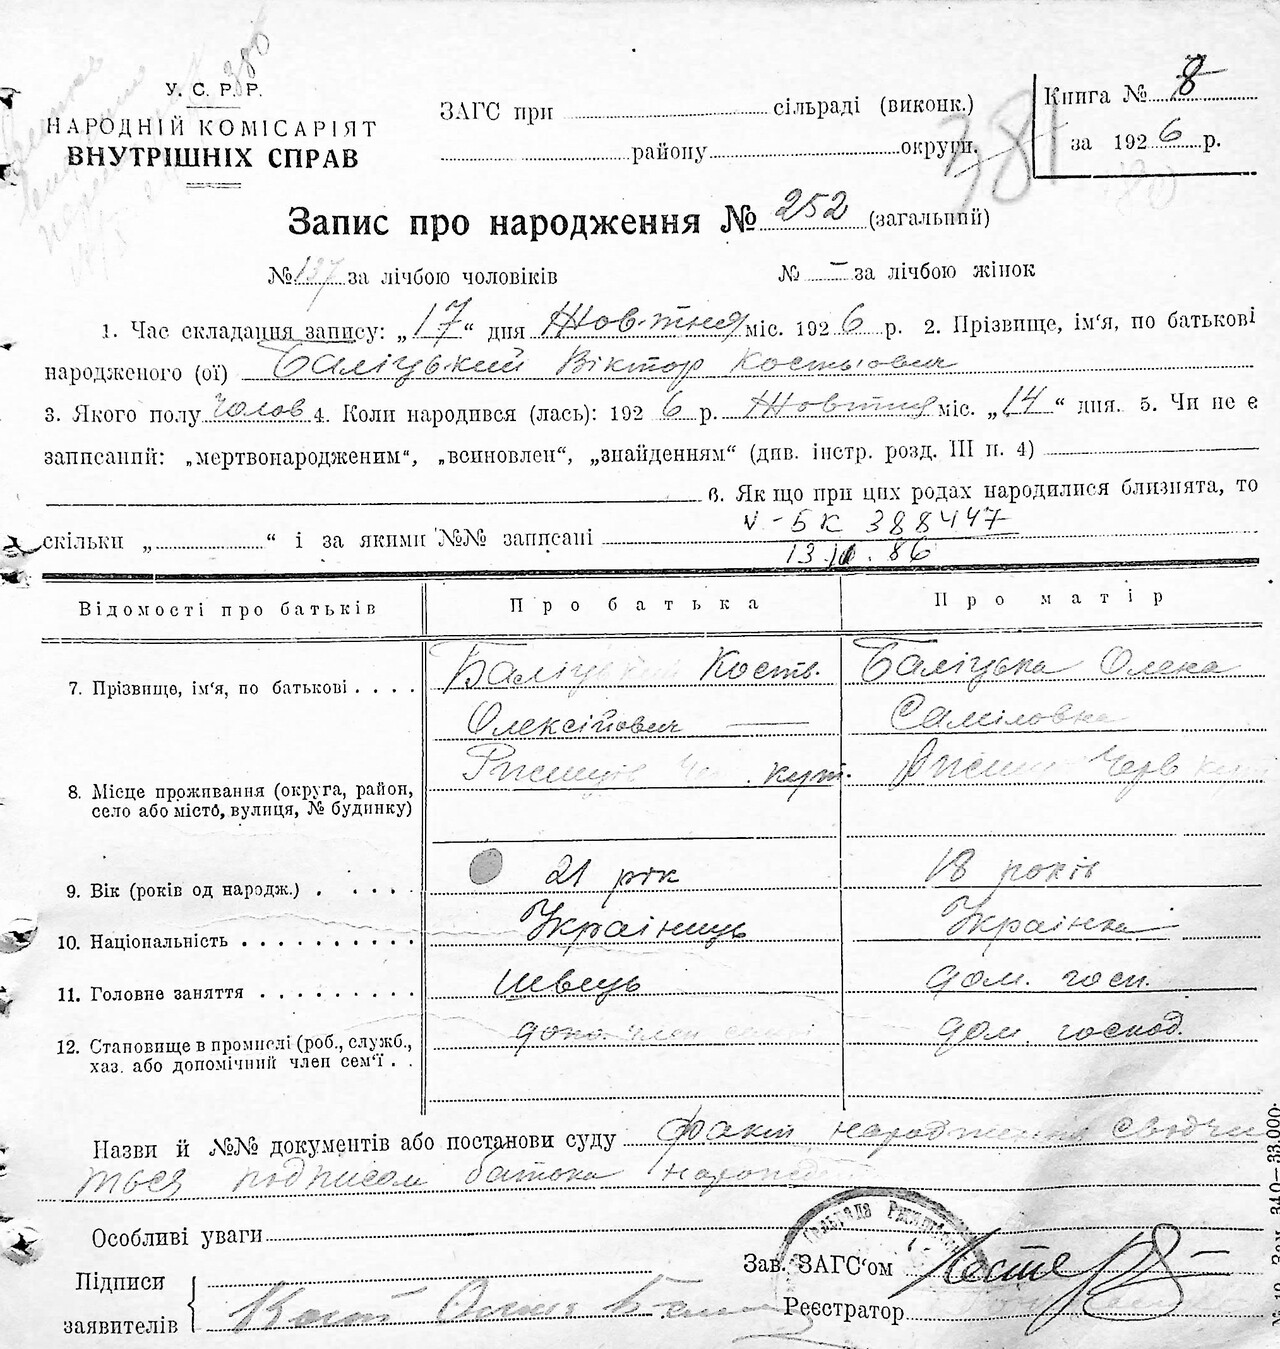 У. С. Р. Р.
НАРОДНІЙ КОМІСАРІЯТ
ВНУТРІШНІХ СПРАВ
380
ЗАГС при сільраді (виконк.)
району округи.
381
Книга № 8
за 1926 р.
Запис про народження № 252 (загальний)
№ 137 за лічбою чоловіків № – за лічбою жінок
1. Час складання запису: „17“ дня Жовтня міс. 1926 р. 2. Прізвище, ім'я, по батькові
народженого (ої) Баліцький Віктор Костьович
3. Якого полу чолов 4. Коли народився (лась): 1926 р. Жовтня міс. „14“ дня. 5. Чи не є
записаний: „мертвонародженим“, „всиновлен“, „знайденням“ (див. інстр. розд. III п. 4)
6. Якщо при цих родах народилися близнята, то
V - БК 388447
скільки „ “ і за якими №№ записані
13. . 86
Відомості про батьків Про батька Про матір
7. Прізвище, ім'я, по батькові . . . . Баліцький Кость. Баліцька Олена
Олексійович — Саміловна
8. Місце проживання (округа, район, село або місто, вулиця, № будинку) кут. Черв
9. Вік (років од народж.) . . . . . 21 рік 18 років
10. Національність . . . . . . . . . . Українець Українка
11. Головне заняття . . . . . . . . . швець дом. госп.
12. Становище в промислі (роб., служб., хаз. або допомічний член сем'ї . . член дом. господ.
Назви й №№ документів або постанови суду Факт народження свідчи
ться подписом батька
Особливі уваги
Підписи
заявителів
Зав. ЗАГС'ом
Реєстратор
Зам. 340—33.000.